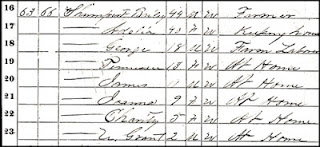 16 63 66 Shumport Briley 44 M W Farmer
17 —— 43 F W Keeping house
18 —— George 18 M W Farm Labore
19 —— 13 F W At Home
20 —— James 11 M W At Home
21 —— Joanna 9 F W At Home
22 —— Charity 5 F W At Home
23 —— U. Grant 2 M W At Home